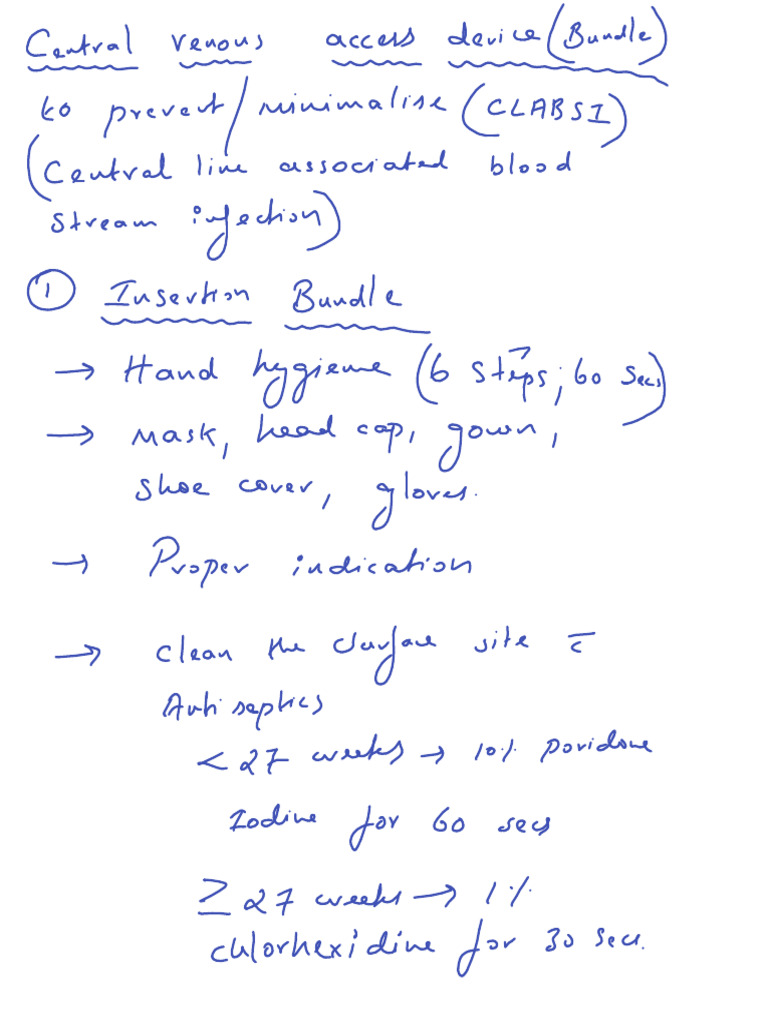 Central venous access device (Bundle)
to prevent/minimalise (CLABSI)
(Central line associated blood
stream infection)
① Insertion Bundle
→ Hand hygiene (6 steps; 60 secs)
→ Mask, head cap, gown,
shoe cover, gloves.
→ Proper indication
→ clean the surface site c̅
Antiseptics
< 27 weeks → 10% Povidone
Iodine for 60 secs
≥ 27 weeks → 1%
chlorhexidine for 30 secs.